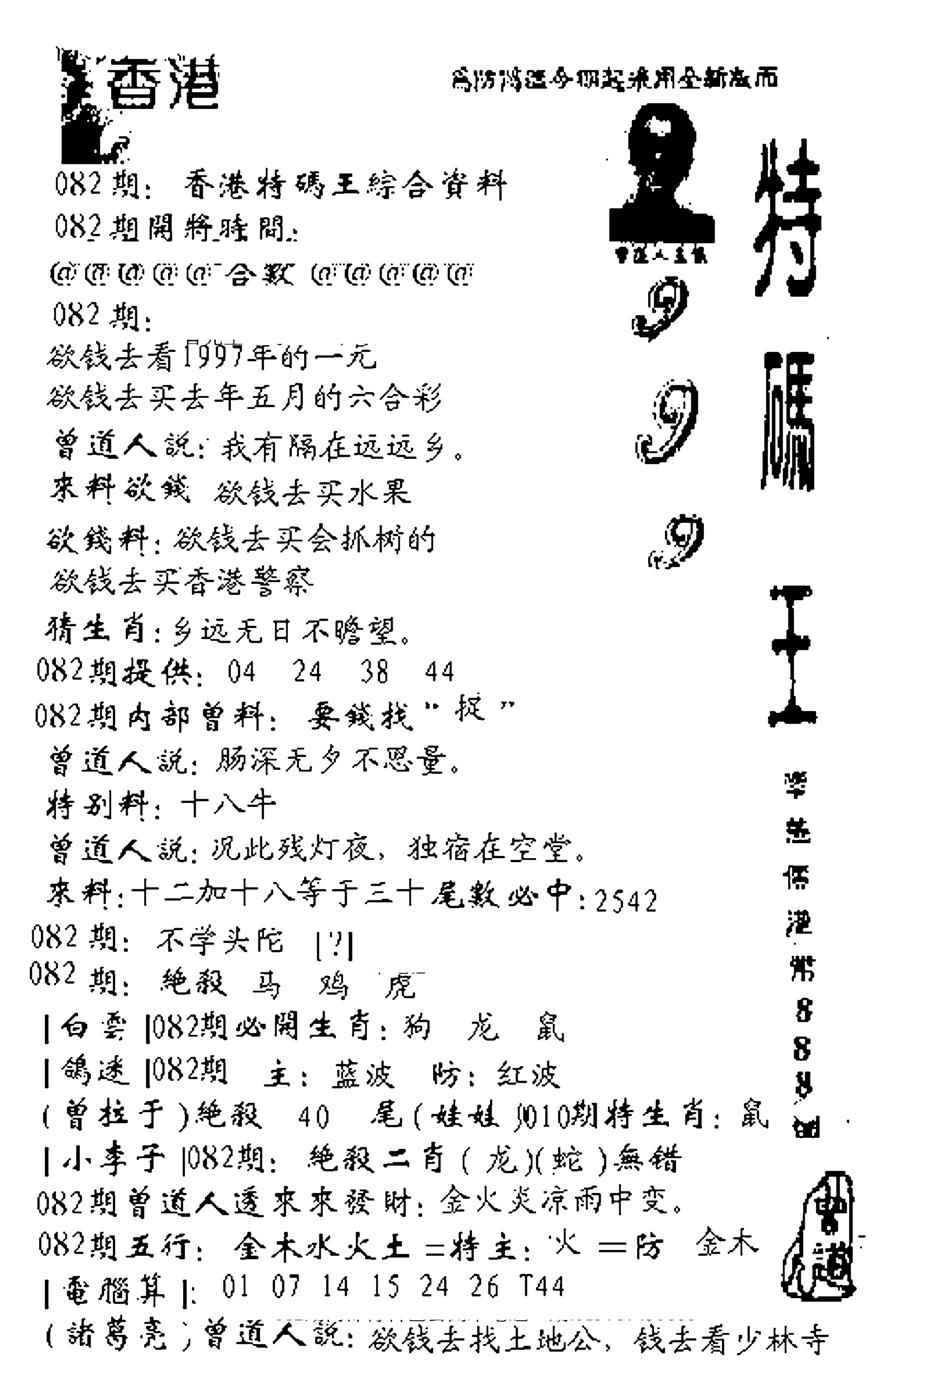 香港
082期: 香港特碼王綜合資料
082期開將時間:
@@@@@合數@@@@@
082期:
欲钱去看1997年的一元
欲钱去买去年五月的六合彩
曾道人説: 我有隔在远远乡。
來料欲錢 欲钱去买水果
欲錢料: 欲钱去买会抓树的
欲钱去买香港警察
猜生肖: 乡远无日不瞻望。
082期提供: 04 24 38 44
082期内部曾料: 要錢找“捉”
曾道人説: 肠深无夕不思量。
特别料: 十八牛
曾道人説: 况此残灯夜, 独宿在空堂。
來料: 十二加十八等于三十尾數必中: 2542
082期: 不学头陀 [?]
082期: 绝殺 马 鸡 虎
|白雲|082期必開生肖: 狗 龙 鼠
|鴿迷|082期 主: 蓝波 防: 红波
(曾拉于)绝殺 40 尾(娃娃)010期特生肖: 鼠
|小李子|082期: 绝殺二肖(龙)(蛇)無错
082期曾道人透來來發財: 金火炎凉雨中变。
082期五行: 金木水火土=特主: 火 =防 金木
|電腦算|: 01 07 14 15 24 26 T44
(諸葛亮)曾道人説: 欲钱去找土地公, 钱去看少林寺
為防漏資今期起采用全新版面
曾道人主儀
999
特碼王
888